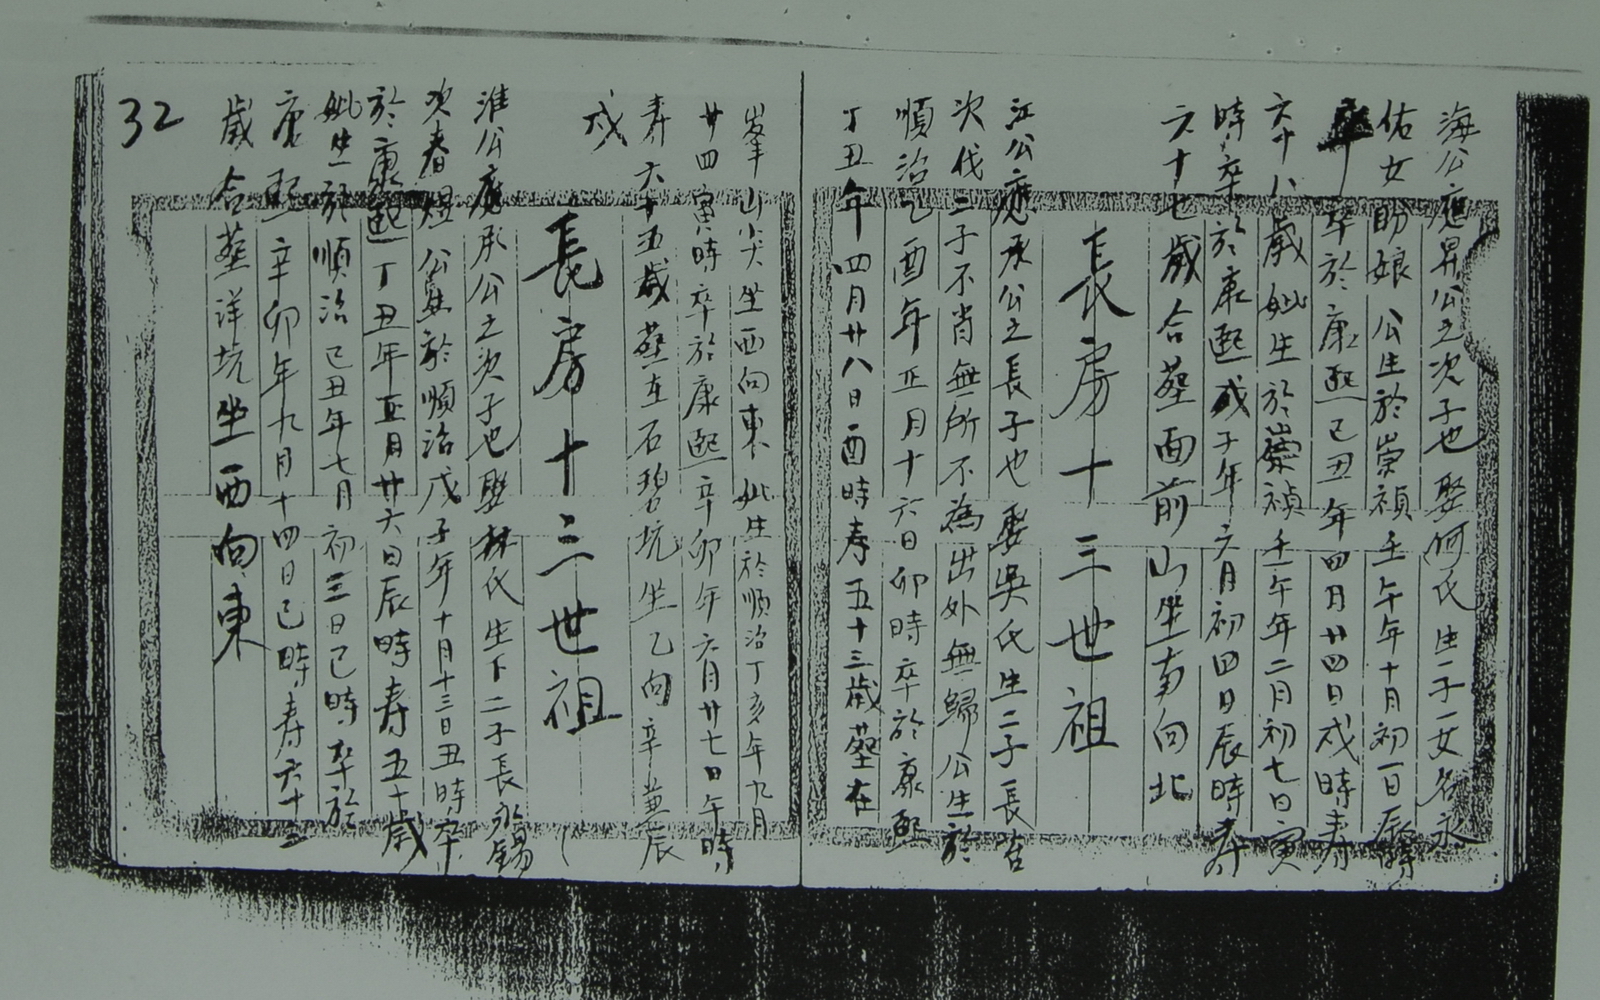 海公應昇公之次子也娶何氏生一子一女名永
佑女盼娘公生於崇禎壬午年十月初一日辰時
卒於康熙己丑年四月廿四日戌時壽
六十八歲妣生於崇禎壬午年二月初七日寅
時卒於康熙戊子年六月初四日辰時壽
六十七歲合葬面前山坐南向北
長房十三世祖
江公應承公之長子也娶吳氏生二子長
次伐二子不肖無所不為出外無歸公生於
順治乙酉年正月十六日卯時卒於康熙
丁丑年四月廿八日酉時壽五十三歲葬在
峯山尖坐西向東妣生於順治丁亥年九月
廿四寅時卒於康熙辛卯年六月廿七日午時
壽六十五歲葬在石碧坑坐乙向辛兼辰
戌
長房十三世祖
淮公應承公之次子也娶林氏生下二子長永錫
次春煜公生於順治戊子年十月十三日丑時卒
於康熙丁丑年正月廿六日辰時壽五十歲
妣生於順治己丑年七月初三日巳時卒於
康熙辛卯年九月十四日巳時壽六十三
歲合葬洋坑坐西向東
32